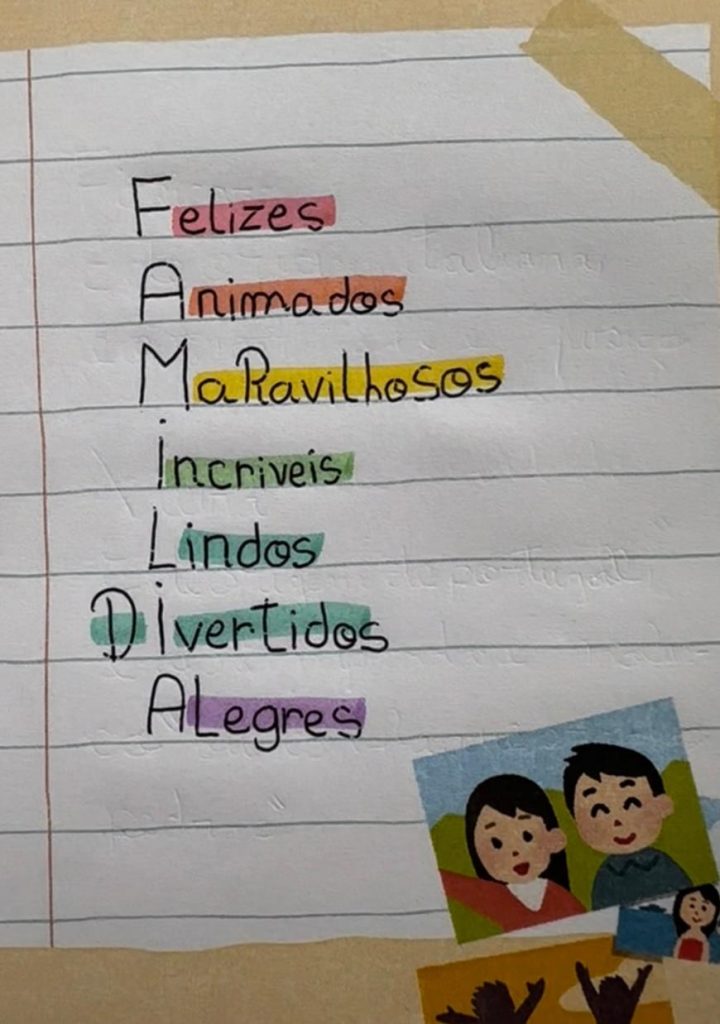 Felizes
Animados
MaRavilhosos
incriveis
Lindos
Divertidos
ALegres